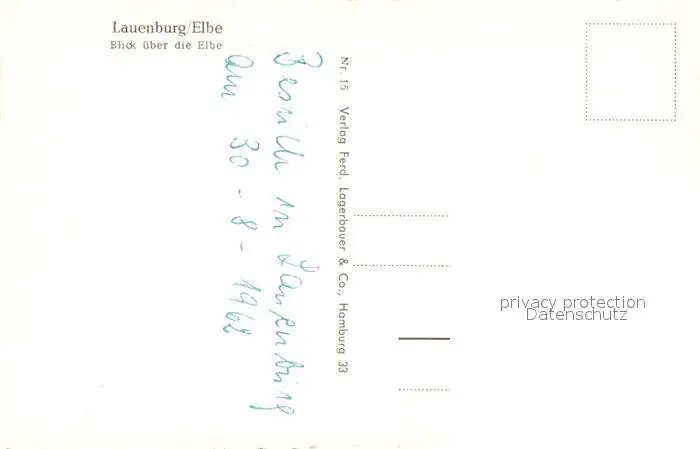 Lauenburg/Elbe
Blick über die Elbe
Besuch in Lauenburg
am 30-8-1962
Nr. 15 Verlag Ferd. Lagerbauer & Co., Hamburg 33
privacy protection
Datenschutz